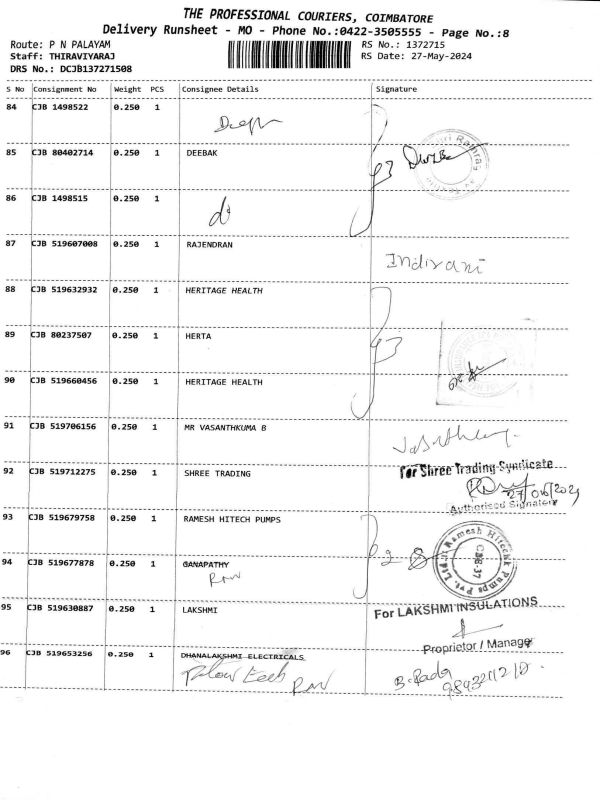 THE PROFESSIONAL COURIERS, COIMBATORE
Delivery Runsheet - MO - Phone No.:0422-3505555 - Page No.:8
Route: P N PALAYAM
RS No.: 1372715
Staff: THIRAVIYARAJ
RS Date: 27-May-2024
DRS No.: DCJB137271508
S No Consignment No Weight PCS Consignee Details Signature
84 CJB 1498522 0.250 1
85 CJB 80402714 0.250 1 DEEBAK
93
86 CJB 1498515 0.250 1
87 CJB 519607008 0.250 1 RAJENDRAN
Indirani
88 CJB 519632932 0.250 1 HERITAGE HEALTH
89 CJB 80237507 0.250 1 HERTA
93
90 CJB 519660456 0.250 1 HERITAGE HEALTH
91 CJB 519706156 0.250 1 MR VASANTHKUMA B
92 CJB 519712275 0.250 1 SHREE TRADING
for Shree Trading Syndicate
Authorised Signatory
93 CJB 519679758 0.250 1 RAMESH HITECH PUMPS
Ramesh Hitechk Pumps Pvt. Ltd.
CBE-37
94 CJB 519677878 0.250 1 GANAPATHY
95 CJB 519630887 0.250 1 LAKSHMI
For LAKSHMI INSULATIONS
Proprietor / Manager
96 CJB 519653256 0.250 1 DHANALAKSHMI ELECTRICALS